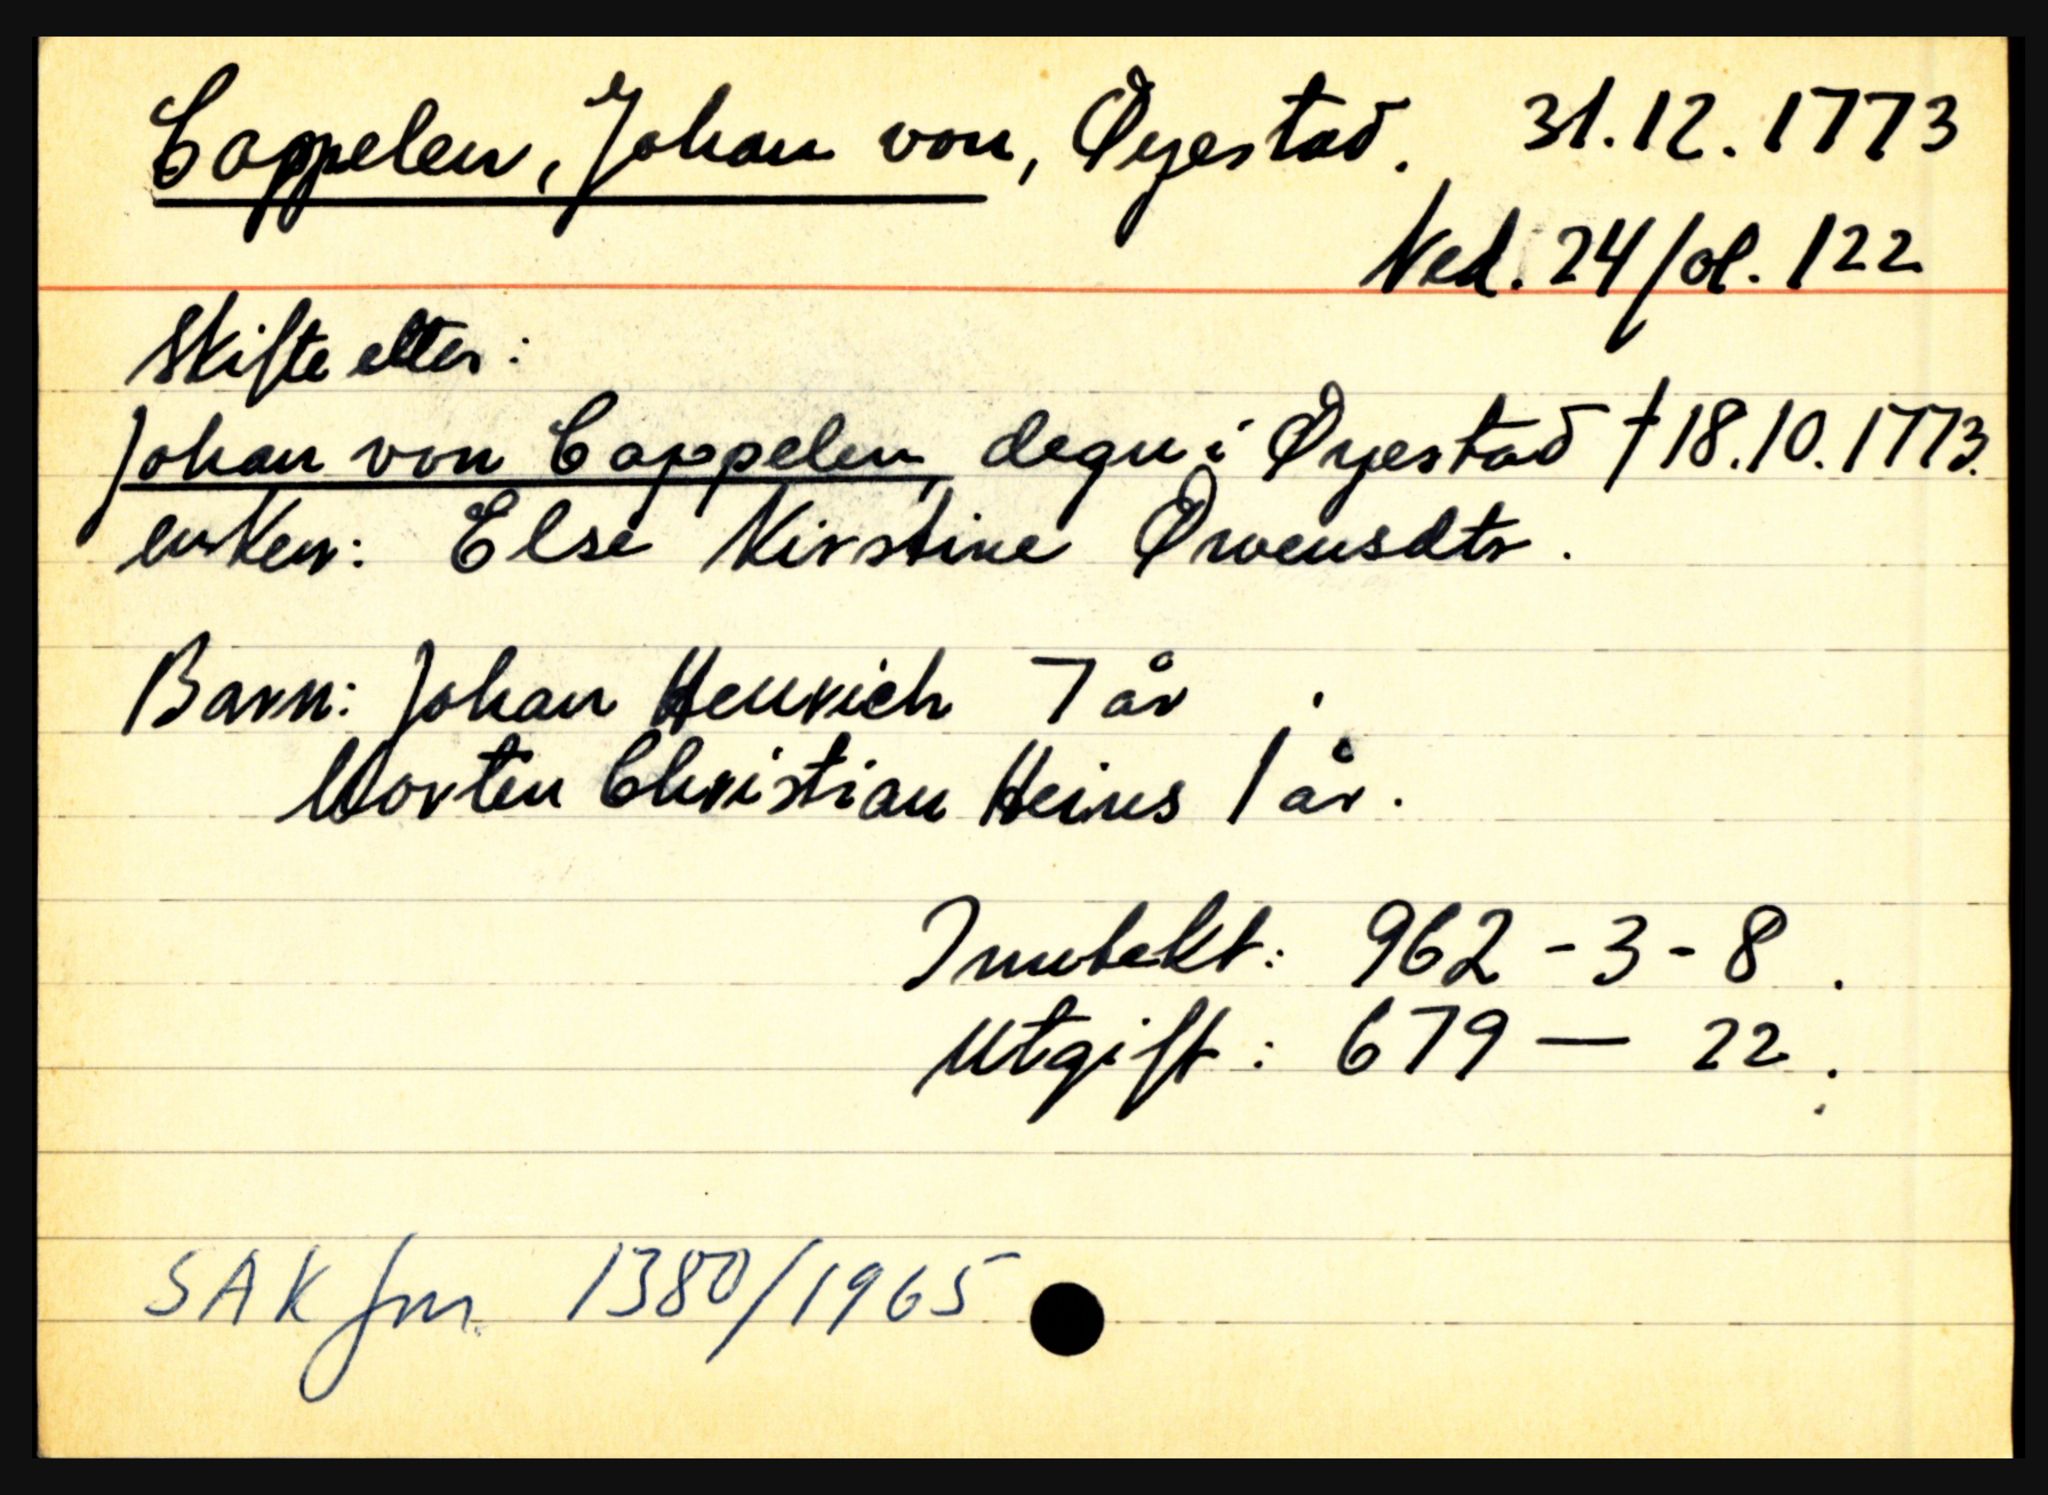 Cappelen, Johan von, Øyestad. 31.12.1773
Ned. 24 fol. 122
Skifte etter:
Johan von Cappelen, degn i Øyestad † 18.10.1773.
enken: Else Kirstine Ovensdtr.
Barn: Johan Henrich 7 år
Morten Christian Heins 1 år.
Inntekt: 962 - 3 - 8.
Utgift: 679 — 22.
SAK jnr. 1380/1965